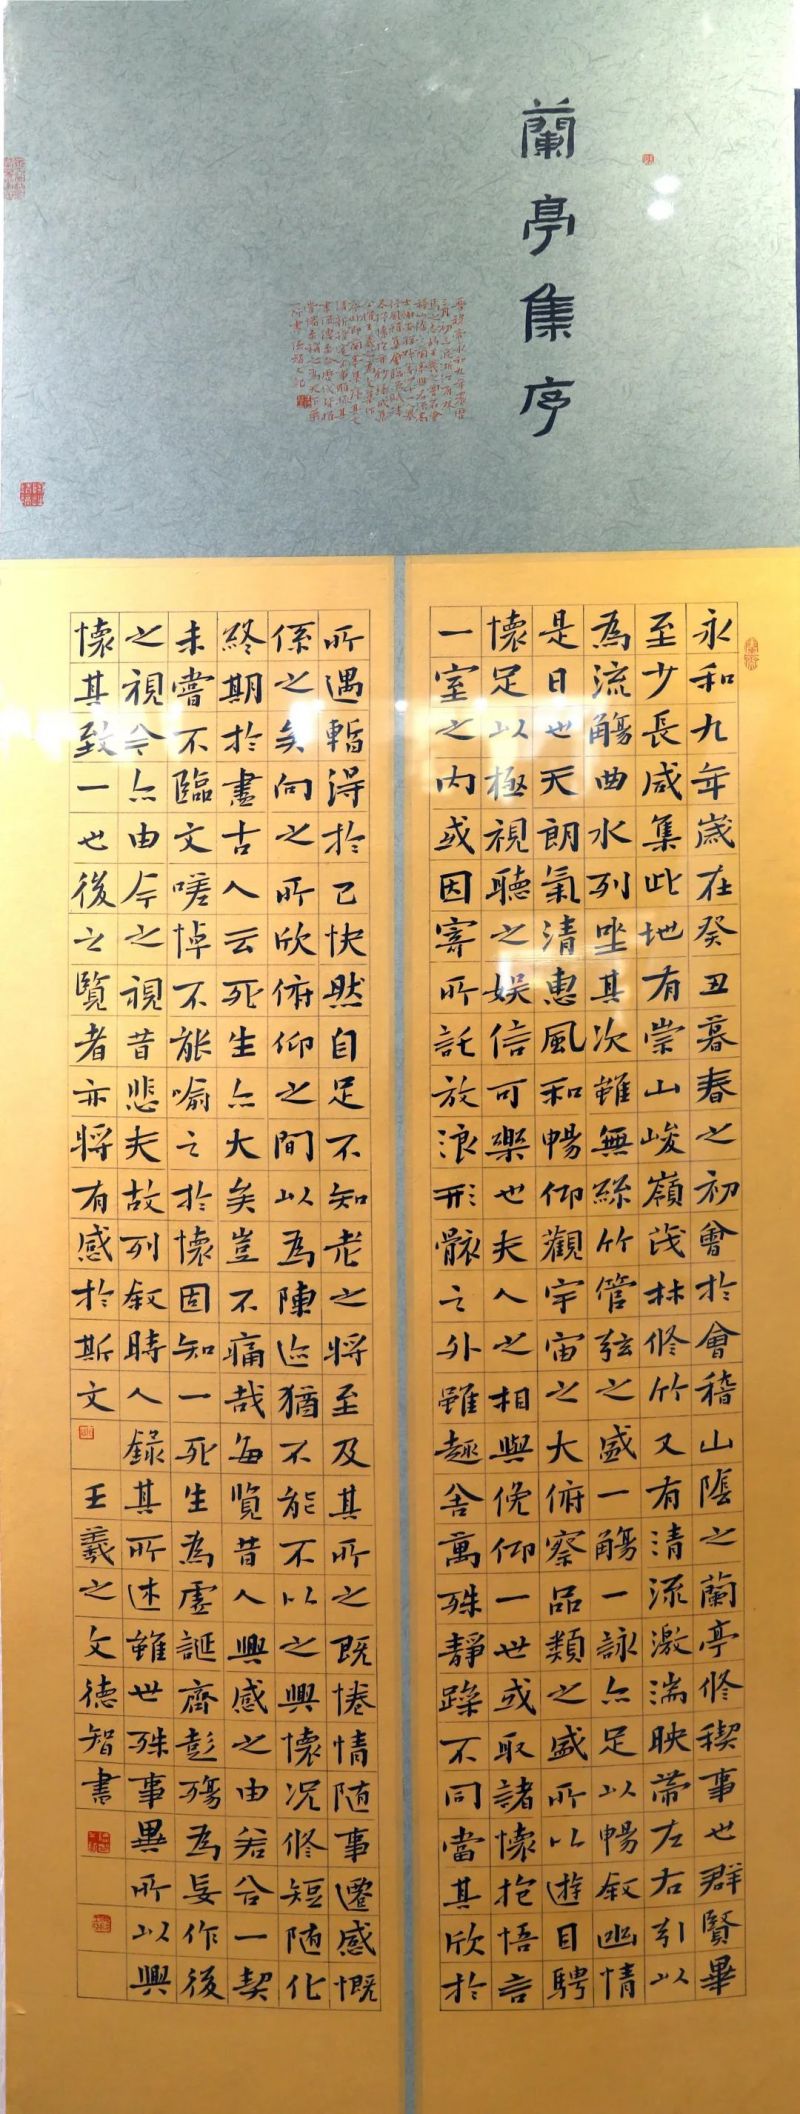 蘭亭集序
永和九年歲在癸丑暮春之初會於會稽山陰之蘭亭修稧事也群賢畢
至少長咸集此地有崇山峻嶺茂林修竹又有清流激湍映帶左右引以
為流觴曲水列坐其次雖無絲竹管弦之盛一觴一詠亦足以暢叙幽情
是日也天朗氣清惠風和暢仰觀宇宙之大俯察品類之盛所以遊目騁
懷足以極視聽之娛信可樂也夫人之相與俛仰一世或取諸懷抱悟言
一室之內或因寄所託放浪形骸之外雖趣舍萬殊靜躁不同當其欣於
所遇暫得於己快然自足不知老之將至及其所之既惓情隨事遷感慨
係之矣向之所欣俯仰之間以為陳迹猶不能不以之興懷況修短隨化
終期於盡古人云死生亦大矣豈不痛哉每覽昔人興感之由若合一契
未嘗不臨文嗟悼不能喻之於懷固知一死生為虛誕齊彭殤為妄作後
之視今亦由今之視昔悲夫故列叙時人錄其所述雖世殊事異所以興
懷其致一也後之覽者亦將有感於斯文 王羲之文德智書